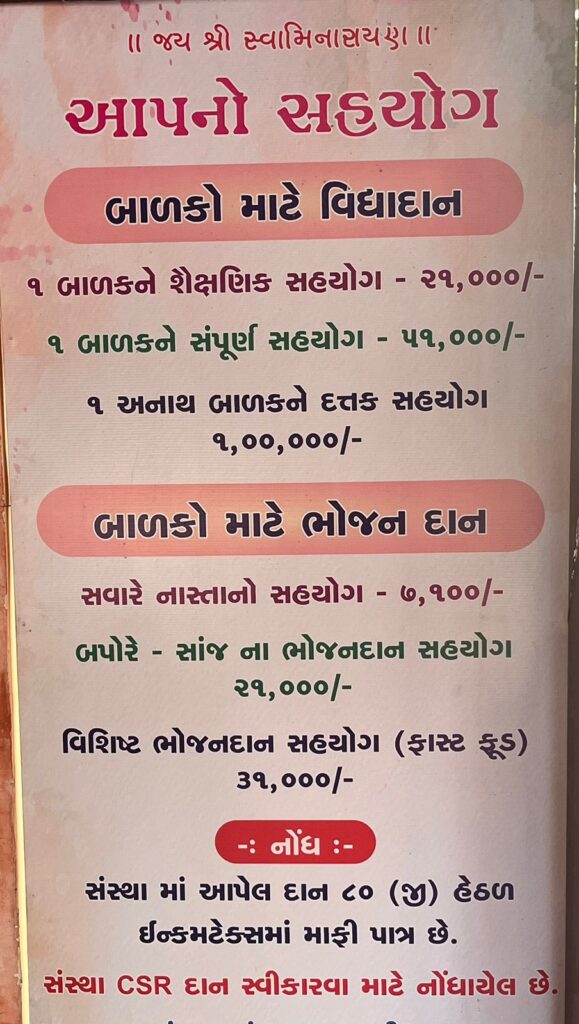 ॥ જય શ્રી સ્વામિનારાયણ ॥
આપનો સહયોગ
બાળકો માટે વિદ્યાદાન
૧ બાળકને શૈક્ષણિક સહયોગ - ૨૧,૦૦૦/-
૧ બાળકને સંપૂર્ણ સહયોગ - ૫૧,૦૦૦/-
૧ અનાથ બાળકને દત્તક સહયોગ
૧,૦૦,૦૦૦/-
બાળકો માટે ભોજન દાન
સવારે નાસ્તાનો સહયોગ - ૭,૧૦૦/-
બપોરે - સાંજ ના ભોજનદાન સહયોગ
૨૧,૦૦૦/-
વિશિષ્ટ ભોજનદાન સહયોગ (ફાસ્ટ ફૂડ)
૩૧,૦૦૦/-
-: નોંધ :-
સંસ્થા માં આપેલ દાન ૮૦ (જી) હેઠળ
ઈન્કમટેક્સમાં માફી પાત્ર છે.
સંસ્થા CSR દાન સ્વીકારવા માટે નોંધાયેલ છે.